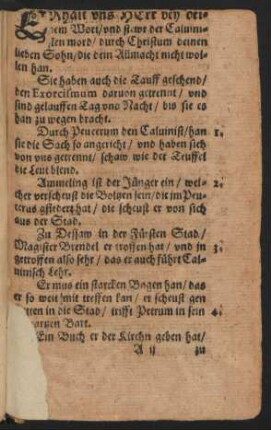 ERhalt vns HErr bey dei-
nem Wort/vnd stewr der Caluini-
sten mord/durch Christum deinen
lieben Sohn/die dein Allmacht nicht wol-
len han.
Sie haben auch die Tauff geschend/
den Exorcismum daruon getrennt/vnd
sind gelauffen Tag vnd Nacht/bis sie es
han zu wegen bracht.
Durch Peucerum den Caluinist/han 1.
sie die Sach so angericht/vnd haben sich
von vns getrennt/schaw wie der Teuffel
die Leut blend.
Ammeling ist der Jünger ein/wel- 2.
cher verscheust die Boltzen sein/die im Peu-
cerus gfidert hat/die scheust er von sich
aus der Stad.
Zu Dessaw in der Fürsten Stad/
Magister Brendel er troffen hat/vnd in 3.
getroffen also sehr/das er auch führt Cal-
uinisch Lehr.
Er mus ein starcken Bogen han/das
er so weit mit treffen kan/er scheust gen
in die Stad/trifft Petrum in sein 4.
Bart.
Ein Buch er der Kirchn geben hat/
A ij zu